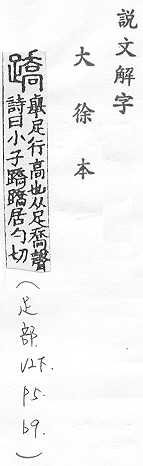 說文解字
大徐本
蹻 舉足行高也从足喬聲
詩曰小子蹻蹻居勺切
(足部. V2下. P5. b9.)